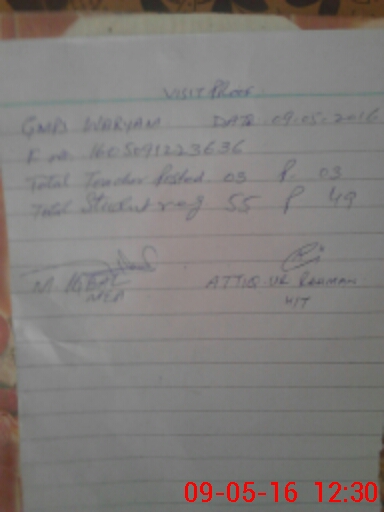 VISIT PROOF
GMPS WARYAM DATE 09.05.2016
F no. 1605091223636
Total Teacher Posted 03 P. 03
Total Student reg 55 P 49
M. IQBAL ATTIQ UR RAHMAN
MEA HT
09-05-16 12:30